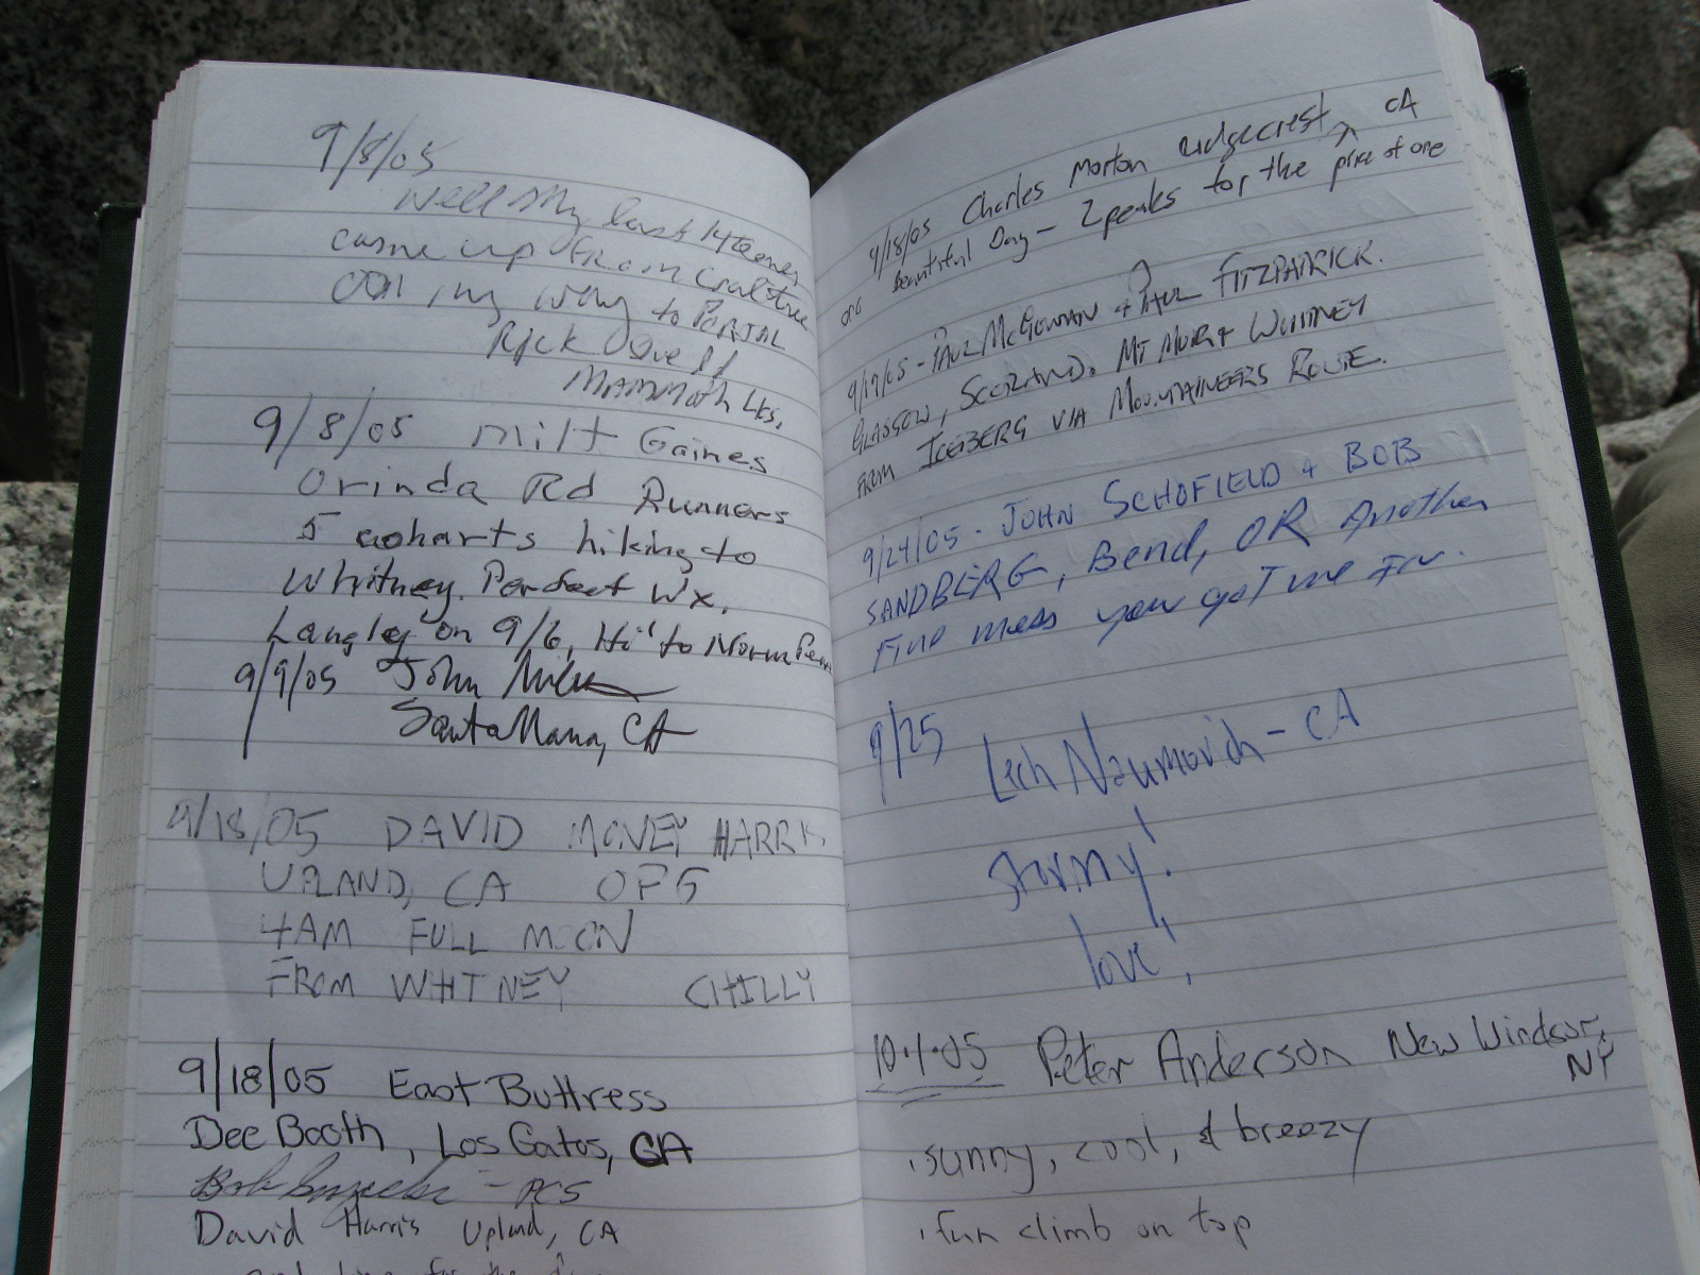 9/8/05
Well my last 14teener
came up from
on my way to PORTAL
Rick
Mammoth Lks.
9/8/05 Milt Gaines
Orinda Rd Runners
5 coharts hiking to
Whitney. Perfect Wx.
Langley on 9/6, Hi' to Norm
9/9/05 John
Santa CA
9/18/05 DAVID MONEY HARRIS
UPLAND, CA OF 5
4AM FULL MOON
FROM WHITNEY CHILLY
9/18/05 East Buttress
Dee Booth, Los Gatos, CA
Bob - PCS
David Harris Upland, CA
for the
9/18/05 Charles Morton Ridgecrest, CA
Beautiful Day - 2 peaks for the price of one
9/19/05 - PAUL McGOWAN + PAUL FITZPATRICK.
GLASGOW, SCOTLAND. MT MUIR + WHITNEY
FROM ICEBERG VIA MOUNTAINEERS ROUTE.
9/24/05 - JOHN SCHOFIELD + BOB
SANDBERG, Bend, OR Another
Fine mess you got me in.
9/25 Lech Naumovich - CA
Stormy!
love!
10.1.05 Peter Anderson New Windsor, NY
. sunny, cool, & breezy
. fun climb on top